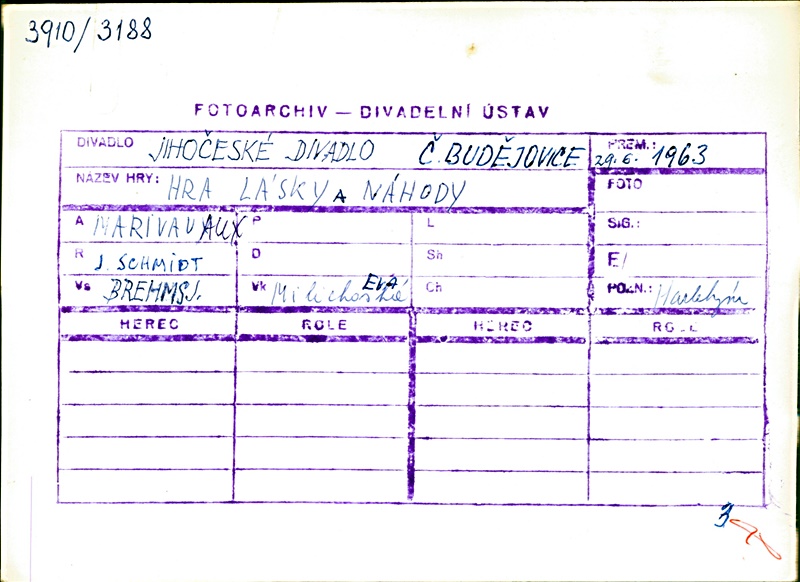 3910/3188
FOTOARCHIV — DIVADELNÍ ÚSTAV
DIVADLO JIHOČESKÉ DIVADLO Č. BUDĚJOVICE PREM.: 29.6. 1963
NÁZEV HRY: HRA LÁSKY A NÁHODY FOTO
A MARIVAUAUX P L SIG.:
R J. SCHMIDT D Sh E/
Vs BREHMS J. Vk EVA Ch POZN.:
HEREC ROLE HEREC ROLE
3